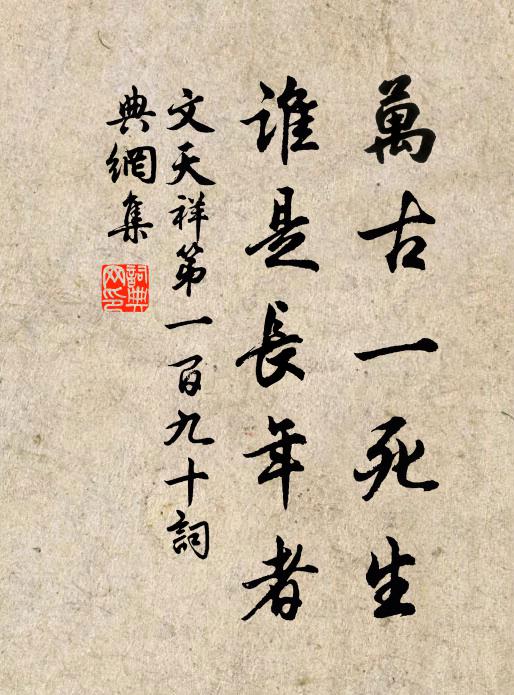 萬古一死生
誰是長年者
文天祥第一百九十詞
典網集
詞典网印